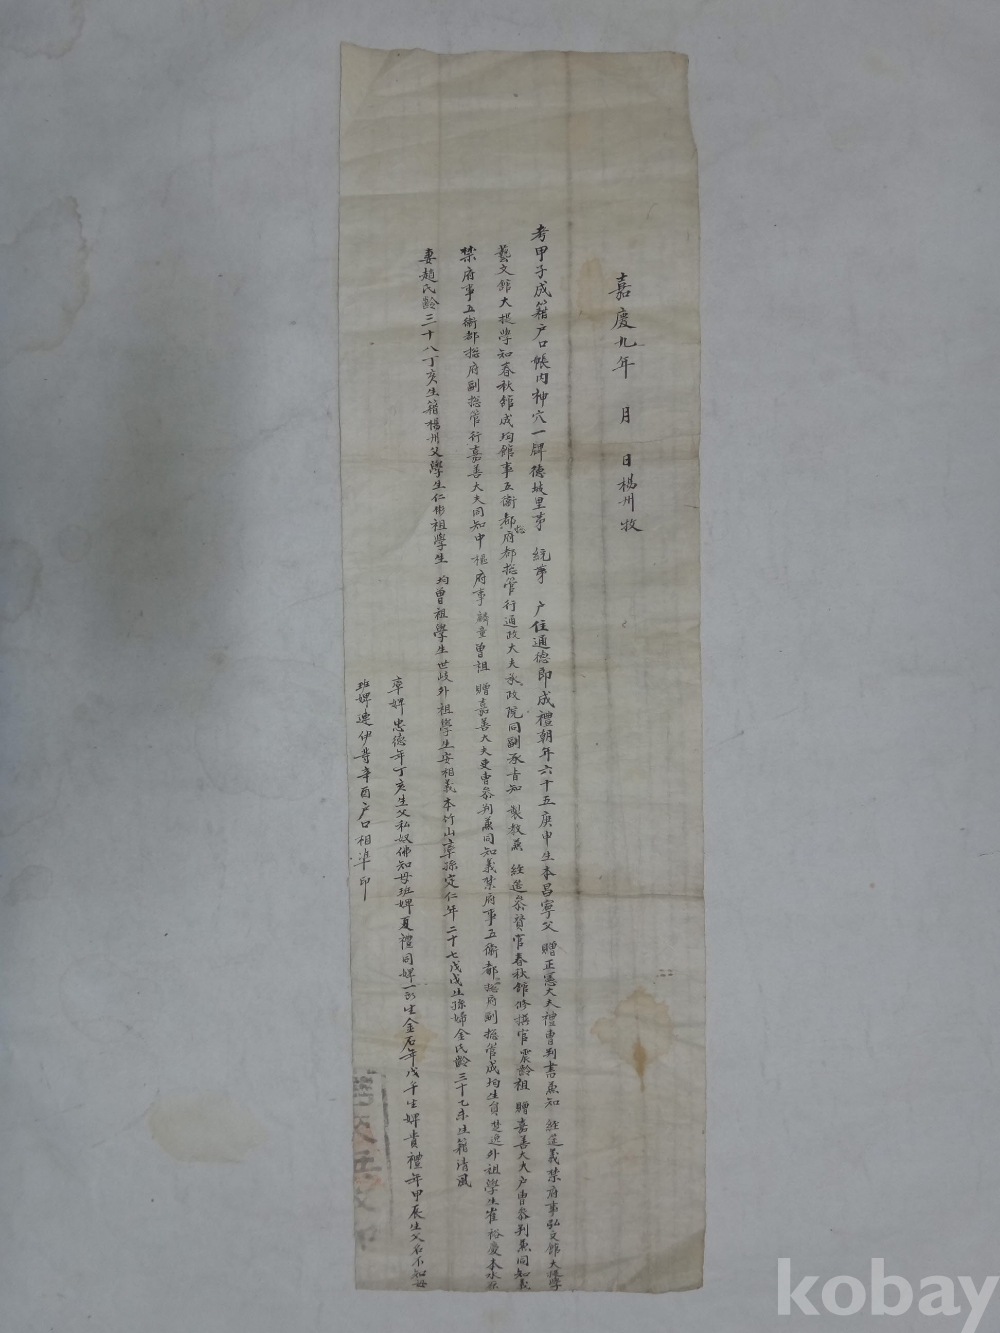 嘉慶九年 月 日楊州牧
考甲子成籍戶口帳內神穴一牌德坡里第 統第 戶住通德郞成禮朝年六十五庚申生本昌寧父 贈正憲大夫禮曹判書兼知 經筵義禁府事弘文館大提學
藝文館大提學知春秋館成均館事五衛都摠府都摠管行通政大夫承政院同副承旨知 製敎兼 經筵參贊官春秋館修撰官震齡祖 贈嘉善大夫戶曹參判兼同知義
禁府事五衛都摠府副摠管行嘉善大夫同知中樞府事 曾祖 贈嘉善大夫吏曹參判兼同知義禁府事五衛都摠府副摠管成均生員楚 外祖學生崔裕慶本水原
妻趙氏齡三十八丁亥生籍楊州父學生仁彬祖學生 均曾祖學生世岐外祖學生安相義本竹山率孫定仁年二十七戊戌生孫婦金氏齡三十乙未生籍淸風
率婢忠德年丁亥生父私奴佛知母班婢夏禮同婢一所生金石年戊午生婢貴禮年甲辰生父名不知母
班婢連伊等辛酉戶口相準印
kobay